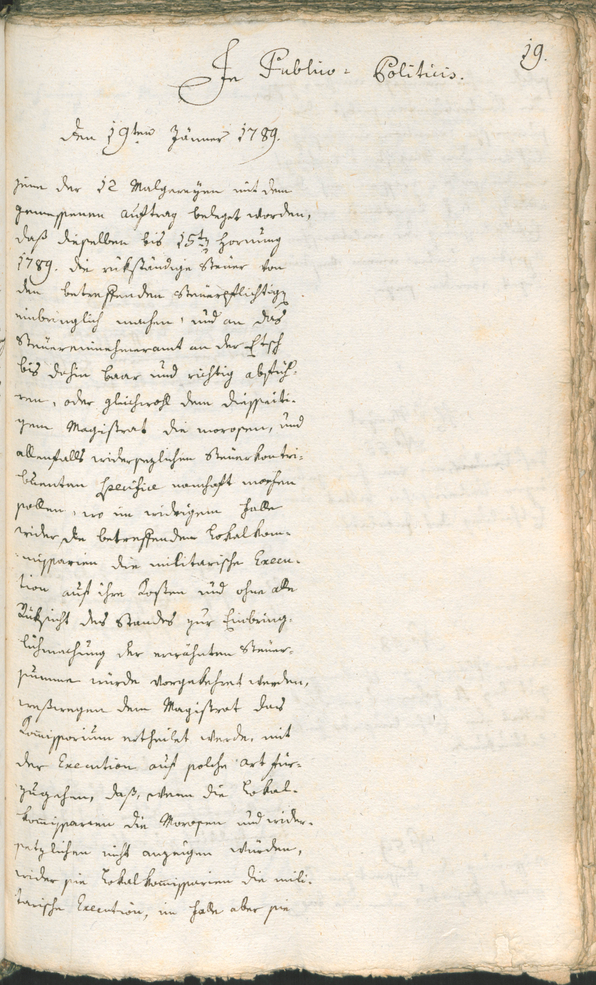 19.
In Publico-Politicis.
Den 19ten Jänner 1789.
zum der 12 Malgereyen mit dem
gemessenen Auftrag beleget worden,
daß dieselben bis 15ten Hornung
1789. die rükständige Steuer von
den betreffenden Steuerpflichtigen
einbringlich machen, und an das
Steuereinnehmeramt an der Etsch
bis dahin baar und richtig abfüh-
ren, oder gleichwohl dem diesseiti-
gem Magistrat die morosen, und
allenfalls widersezlichen Steuerkontri-
buenten specifice namhaft machen
sollen, wo im widrigem Falle
wider die betreffenden Lokalkom-
missarien die militarische Execu-
tion auf ihre Kosten und ohne alle
Rüksicht des Standes zur Einbring-
lichmachung der erwähnten Steuer-
summe würde vorgekehret werden,
weßwegen dem Magistrat das
Kommissorium ertheilet werde, mit
der Execution auf solche Art für-
zugehen, daß, wenn die Lokal-
kommissarien die Morosen und wider-
sezlichen nicht anzeigen würden,
wider sie Lokalkommissarien die mili-
tarische Execution, im Falle aber sie